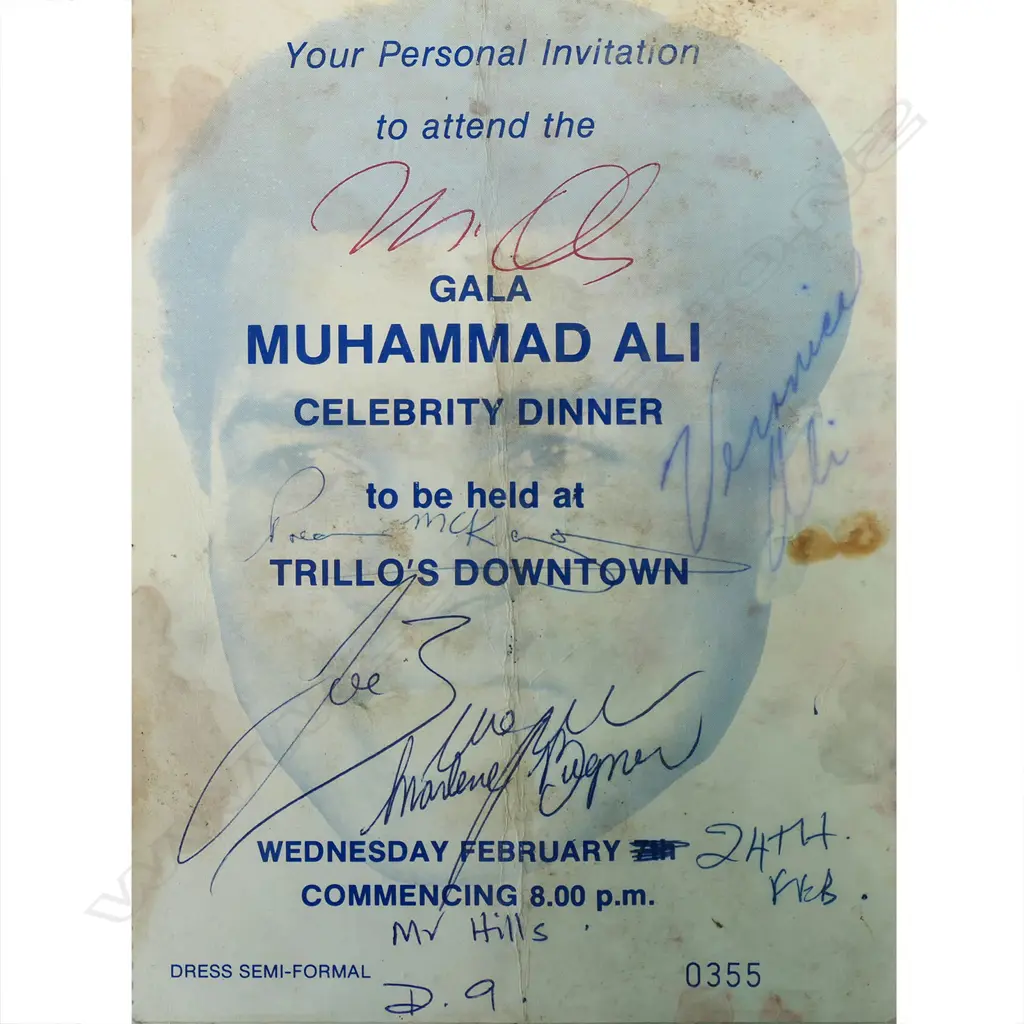 Your Personal Invitation
to attend the
M. Ali
GALA
MUHAMMAD ALI
CELEBRITY DINNER
Veronica
Ali
to be held at
TRILLO'S DOWNTOWN
Joe Bugner
Marlene Bugner
WEDNESDAY FEBRUARY 24TH.
FEB.
COMMENCING 8.00 p.m.
Mr Hills.
DRESS SEMI-FORMAL 0355
D.9.